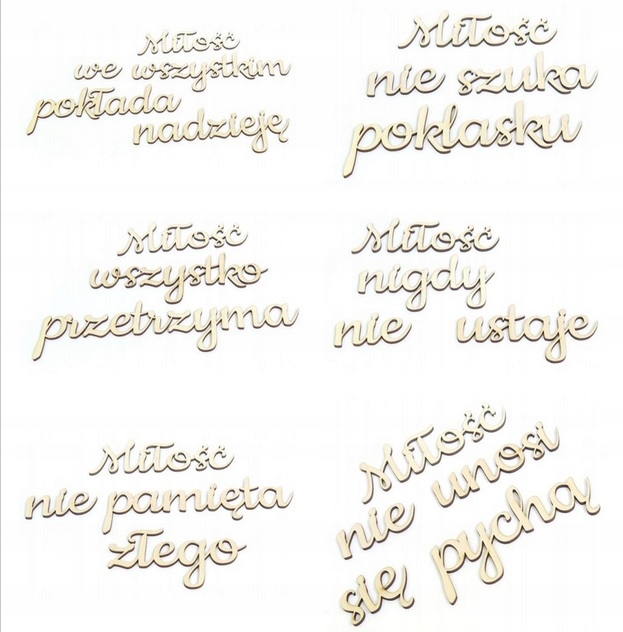 Miłość
we wszystkim
pokłada
nadzieję
Miłość
nie szuka
poklasku
Miłość
wszystko
przetrzyma
Miłość
nigdy
nie ustaje
Miłość
nie pamięta
złego
Miłość
nie unosi
się pychą